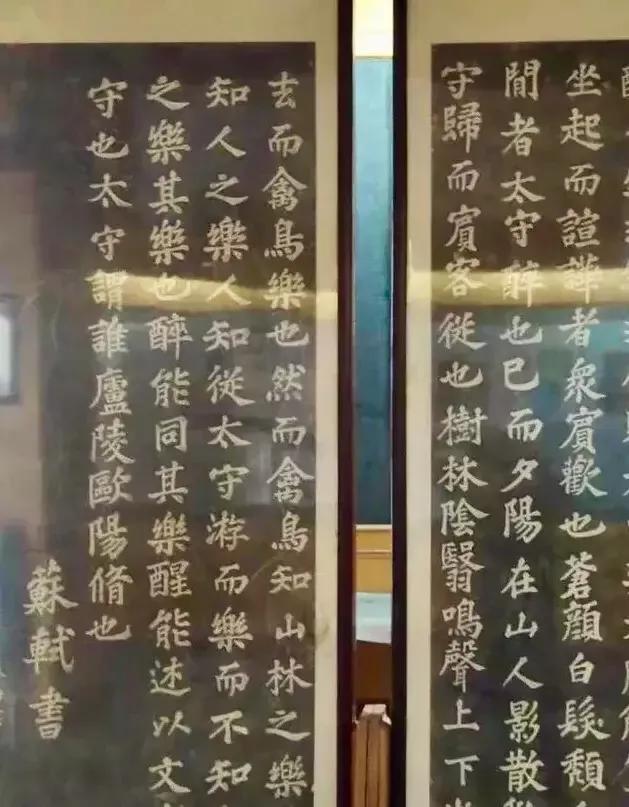 坐起而諠譁者衆賓歡也蒼顔白髮頹
間者太守醉也已而夕陽在山人影散
守歸而賓客從也樹林陰翳鳴聲上下
去而禽鳥樂也然而禽鳥知山林之樂
知人之樂人知從太守游而樂而不知
之樂其樂也醉能同其樂醒能述以文
守也太守謂誰廬陵歐陽脩也
蘇軾書